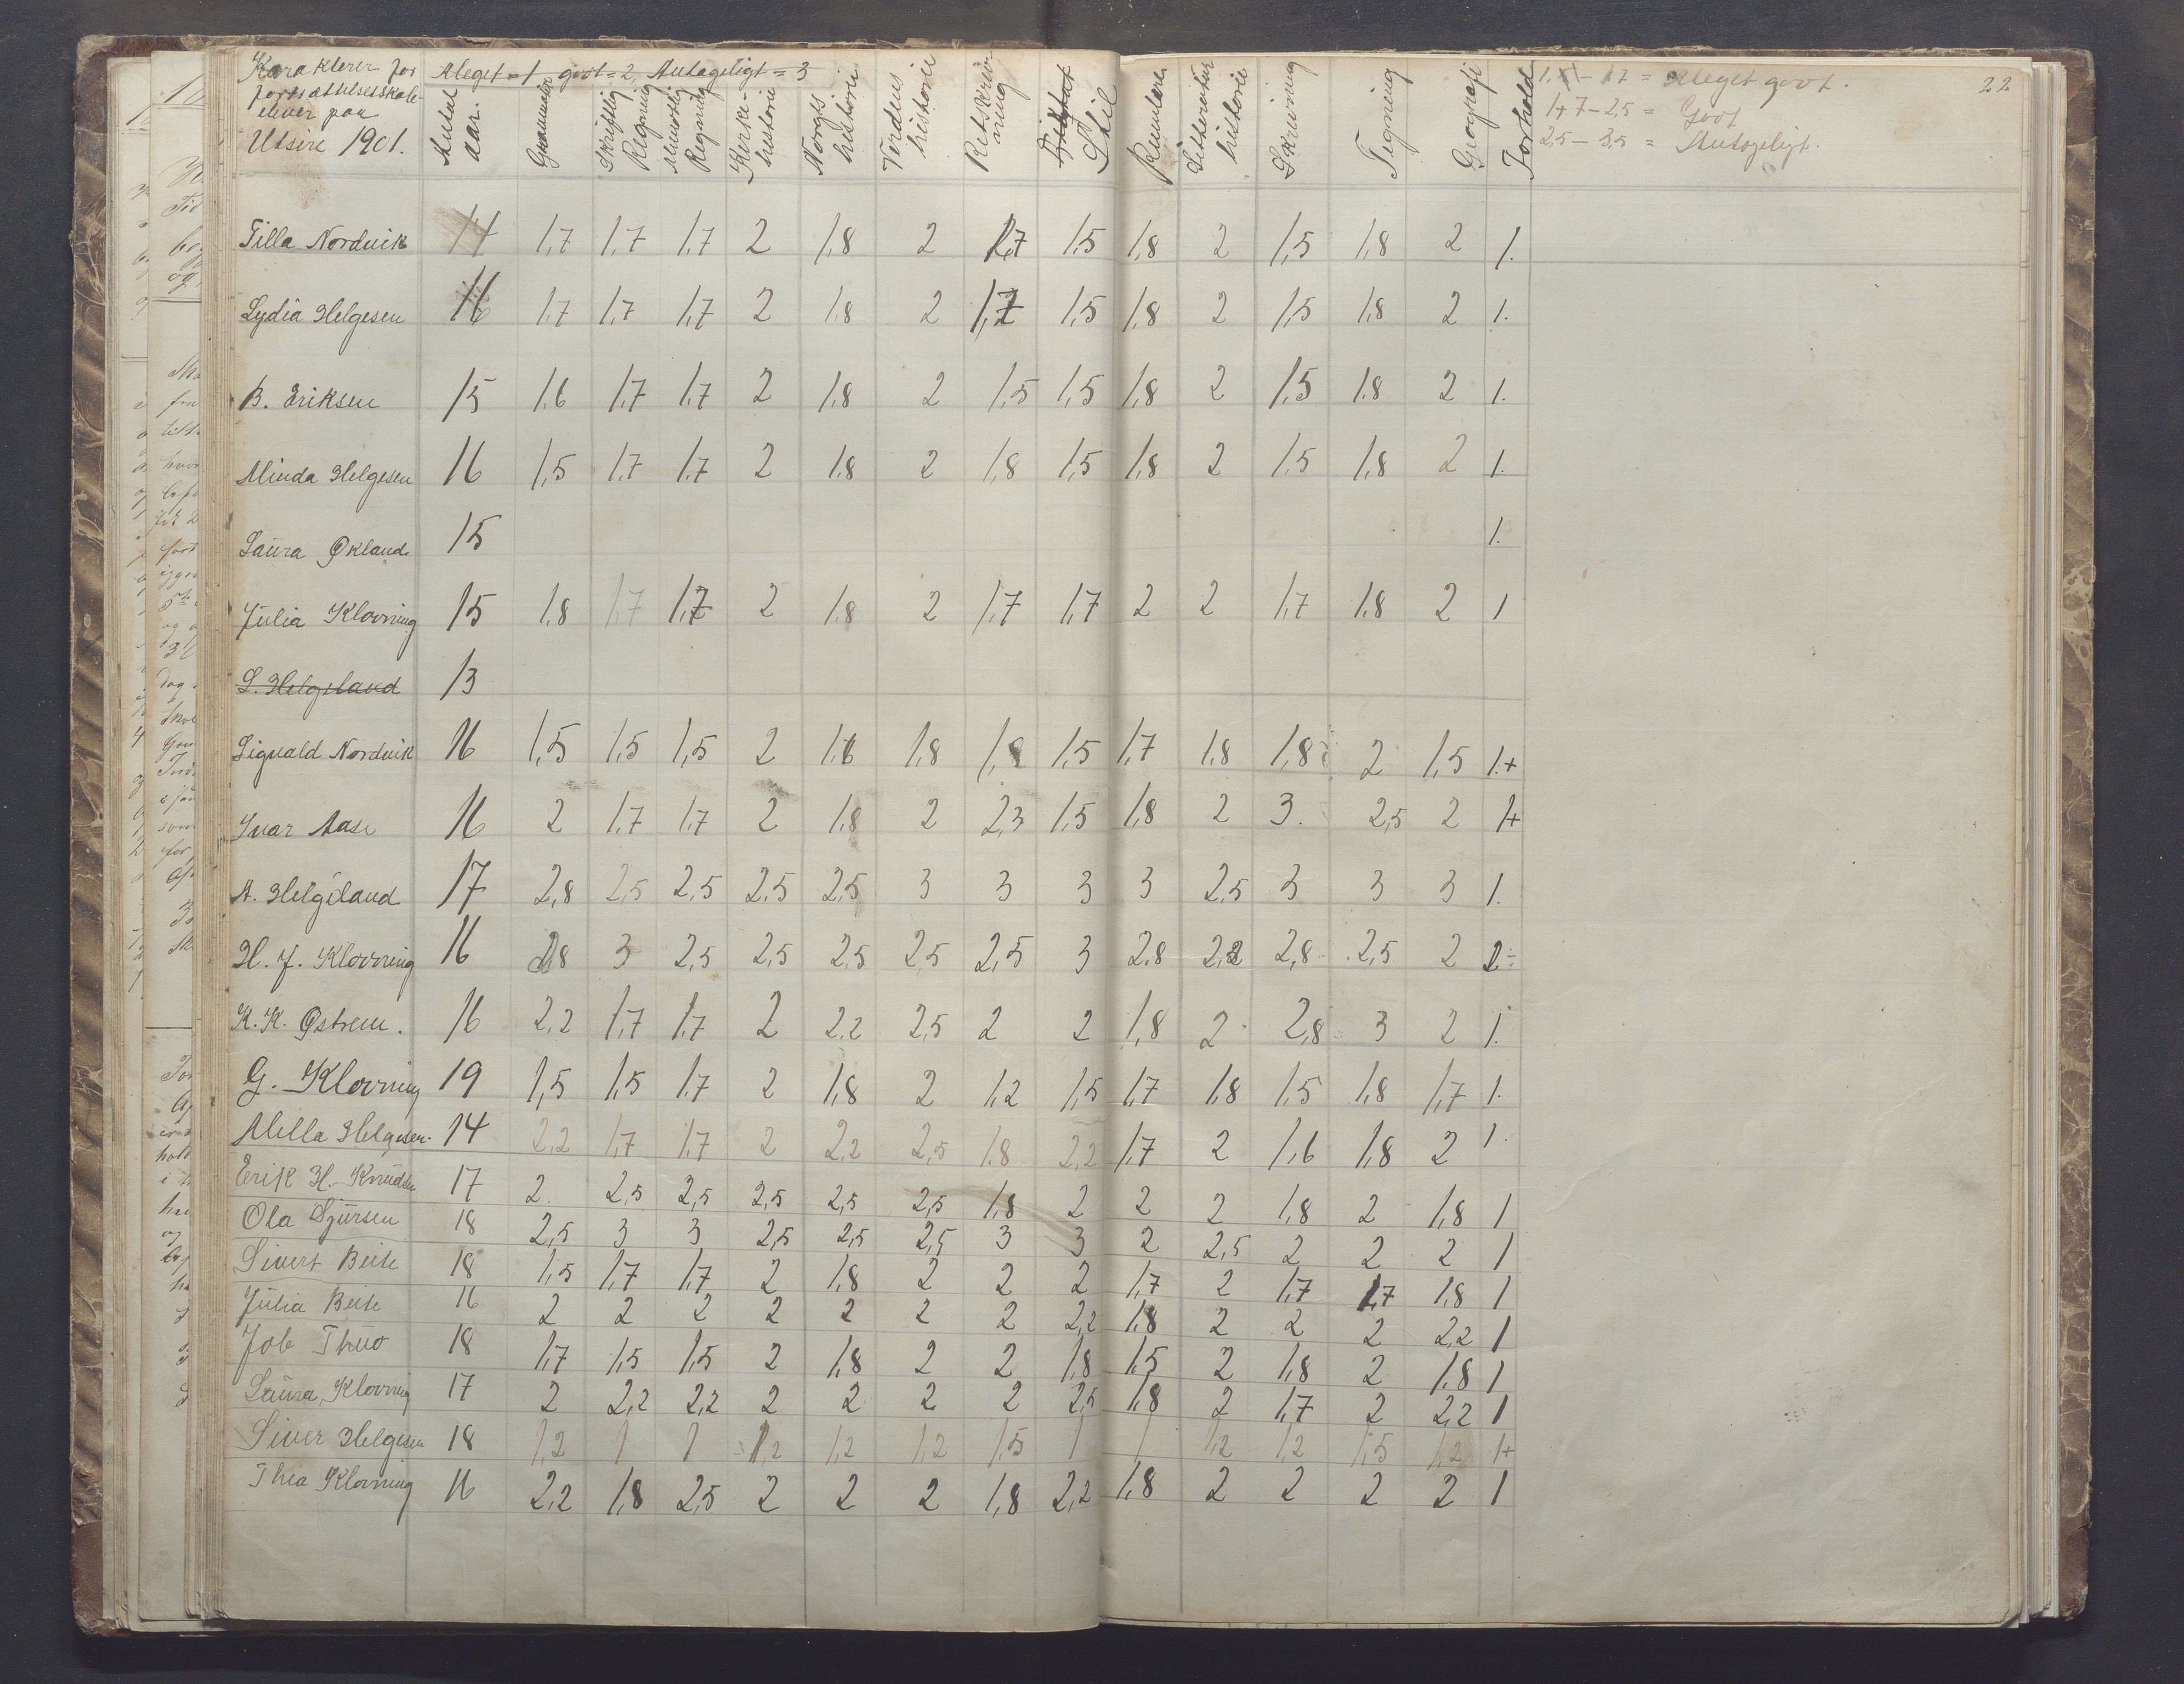 Karakterer for
fortsættelsesskole-
elever paa
Utsire 1901.
Meget = 1 godt = 2, Antageligt = 3
Antal aar. Grammatik Skriftlig Regning Mundtlig Regning Kirke-historie Norges historie Verdens historie Retskrivning Stil Formlære Litteratur historie Skrivning Tegning Geografi Forhold
1,1 – 1,7 = Meget godt.
1,7 – 2,5 = Godt
2,5 – 3,5 = Antageligt.
22
Tilla Nordvik 14 1,7 1,7 1,7 2 1,8 2 1,7 1,5 1,8 2 1,5 1,8 2 1.
Lydia Helgesen 16 1,7 1,7 1,7 2 1,8 2 1,7 1,5 1,8 2 1,5 1,8 2 1.
B. Eriksen 15 1,6 1,7 1,7 2 1,8 2 1,5 1,5 1,8 2 1,5 1,8 2 1.
Minda Helgesen 16 1,5 1,7 1,7 2 1,8 2 1,8 1,5 1,8 2 1,5 1,8 2 1.
Laura Økland 15 1.
Julia Klovning 15 1,8 1,7 1,7 2 1,8 2 1,7 1,7 2 2 1,7 1,8 2 1
S. Helgeland 13
Sigvald Nordvik 16 1,5 1,5 1,5 2 1,6 1,8 1,8 1,5 1,7 1,8 1,8 2 1,5 1.+
Ivar Aase 16 2 1,7 1,7 2 1,8 2 2,3 1,5 1,8 2 3. 2,5 2 1+
A. Helgeland 17 2,8 2,5 2,5 2,5 2,5 3 3 3 3 2,5 3 3 3 1.
H. J. Klovning 16 2,8 3 2,5 2,5 2,5 2,5 2,5 3 2.8 2,2 2,8 2,5 2 2÷
K. K. Østrem. 16 2,2 1,7 1,7 2 2,2 2,5 2 2 1,8 2 2,8 3 2 1.
G. Klovning 19 1,5 1,5 1,7 2 1,8 2 1,2 1,5 1,7 1,8 1,5 1,8 1,7 1.
Milla Helgesen. 14 2,2 1,7 1,7 2 2,2 2,5 1,8 2,2 1,7 2 1,6 1,8 2 1.
Erik H. Knudsen 17 2. 2,5 2,5 2,5 2,5 2,5 1,8 2 2 2 1,8 2 1,8 1
Ola Sjursen 18 2,5 3 3 2,5 2,5 2,5 3 3 2 2,5 2 2 2 1
Sivert Beite 18 1,5 1,7 1,7 2 1,8 2 2 2 1,7 2 1,7 1,7 1,8 1
Julia Beite 16 2 2 2 2 2 2 2 2,2 1,8 2 2 2 2,2 1
Job Thuo 18 1,7 1,5 1,5 2 1,8 2 2 1,8 1,5 2 1,8 2 1,8 1
Laura Klovning 17 2 2,2 2,2 2 2 2 2 2,5 1,8 2 1,7 2 2,2 1
Siver Helgesen 18 1,2 1 1 1,2 1,2 1,2 1,5 1 1 1,2 1,2 1,5 1,2 1+
Thea Klovning 16 2,2 1,8 2,5 2 2 2 1,8 2,2 1,8 2 2 2 2 1